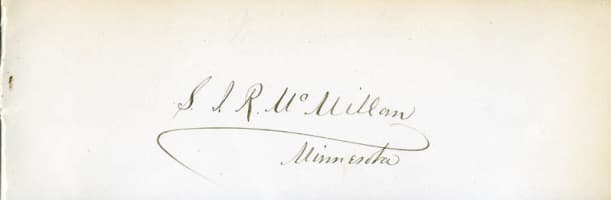 S. J. R. McMillan
Minnesota